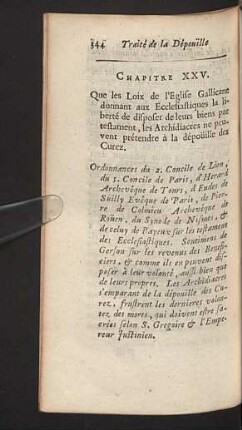 344 Traité de la Dépoüille
CHAPITRE XXV.
Que les Loix de l'Eglise Gallicane
donnant aux Ecclesiastiques la li-
berté de disposer de leurs biens par
testament, les Archidiacres ne peu-
vent prétendre à la dépoüille des
Curez.
Ordonnances du 2. Concile de Lion,
du 5. Concile de Paris, d'Herard
Archevêque de Tours, d'Eudes de
Suilly Evêque de Paris, de Pier-
re de Colmieu Archevêque de
Roüen, du Synode de Nismes, &
de celuy de Bayeux sur les testamens
des Ecclesiastiques. Sentimens de
Gerson sur les revenus des Benefi-
ciers, & comme ils en peuvent dis-
poser à leur volonté, aussi bien que
de leurs propres. Les Archidiacres
s'emparant de la dépoüille des Cu-
rez, frustrent les dernieres volon-
tez des morts, qui doivent estre sa-
crées selon S. Gregoire & l'Empe-
reur Justinien.